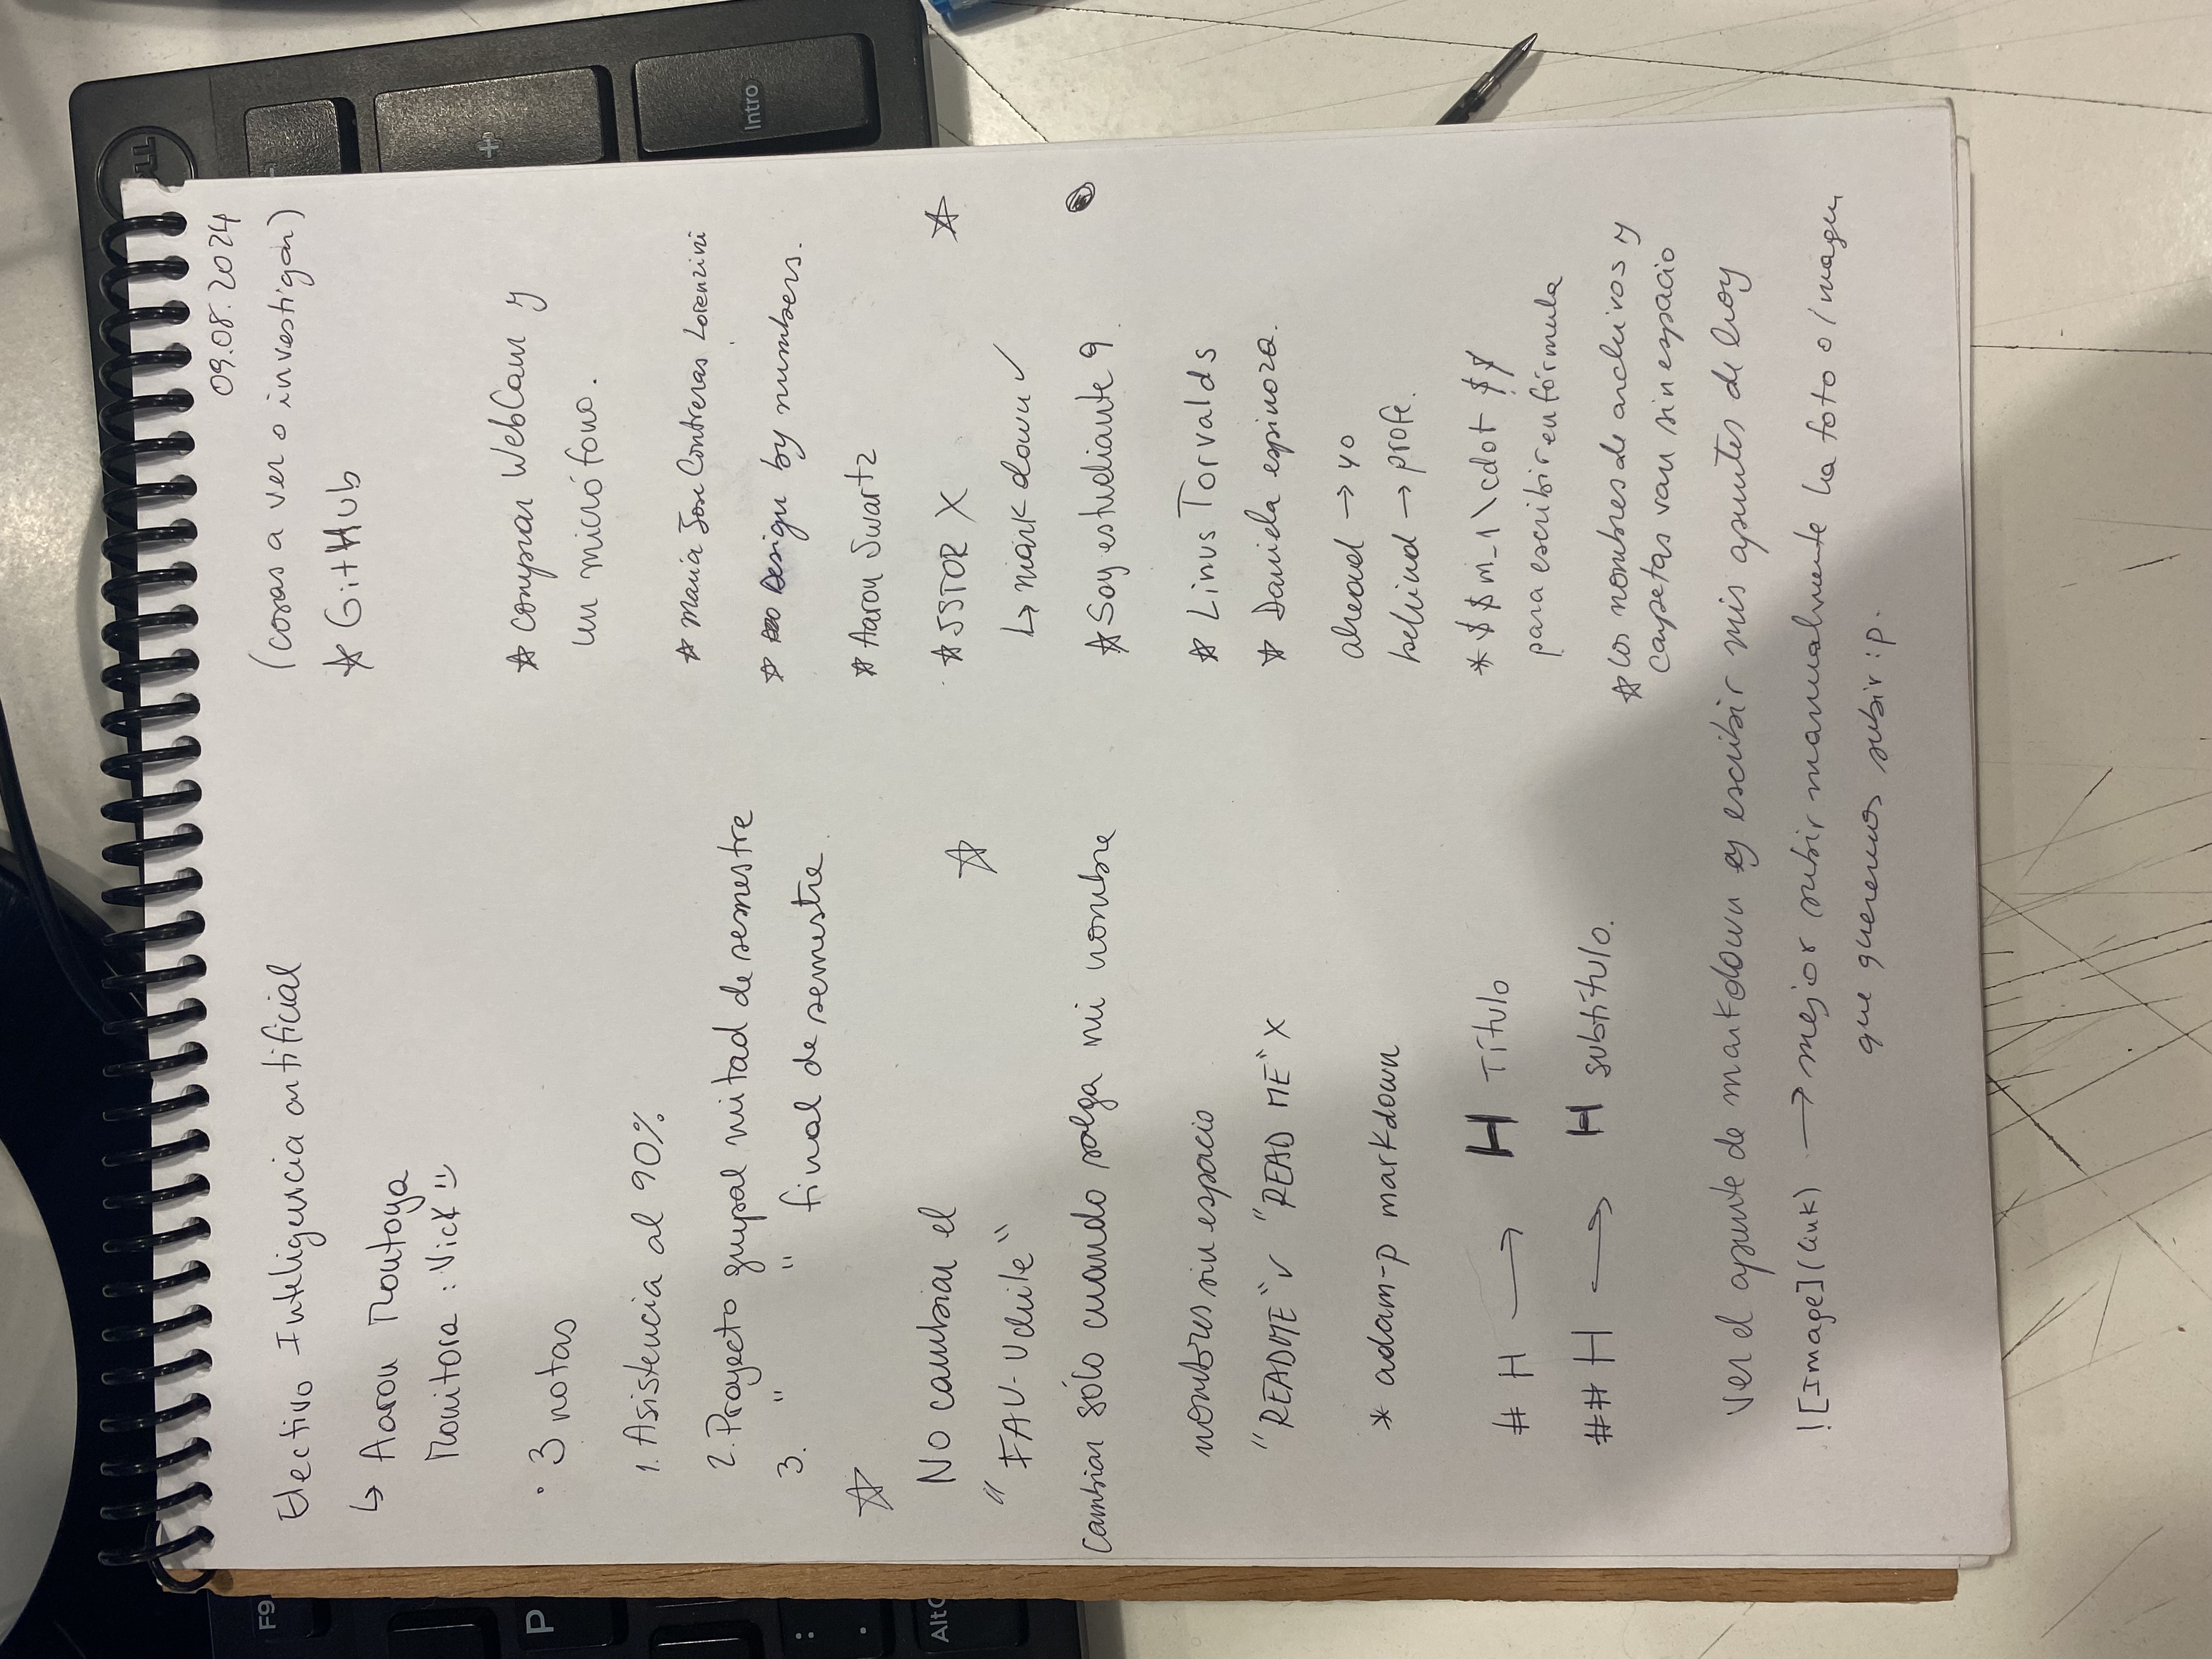 09.08.2024
Electivo Inteligencia artificial
↳ Aaron Montoya
Monitora : Vick
• 3 notas
1. Asistencia al 90%
2. Proyecto grupal mitad de semestre
3. " " final de semestre
☆
No cambiar el
"FAU-Uchile"
☆
Cambiar sólo cuando salga mi nombre
nombres sin espacio
"README" ✓ "READ ME" X
* adam-p markdown
# H → H Título
## H → H subtítulo.
(cosas a ver o investigar)
☆ GitHub
☆ comprar WebCam y
un micrófono.
☆ Maria Jose Contreras Lorenzini
☆ Design by numbers.
☆ Aaron Swartz
☆ JSTOR X ☆
↳ markdown ✓
☆ Soy estudiante 9
☆ Linus Torvalds
☆ Daniela espinoza.
ahead → yo
behind → profe.
* $$m_1\cdot $$
para escribir en fórmula
☆ los nombres de archivos y
carpetas van sin espacio
Ver el apunte de markdown y escribir mis apuntes de hoy
![Image](link) → mejor subir manualmente la foto o imagen
que queremos subir :p.
F9
P
:
.
Alt
+
Intro